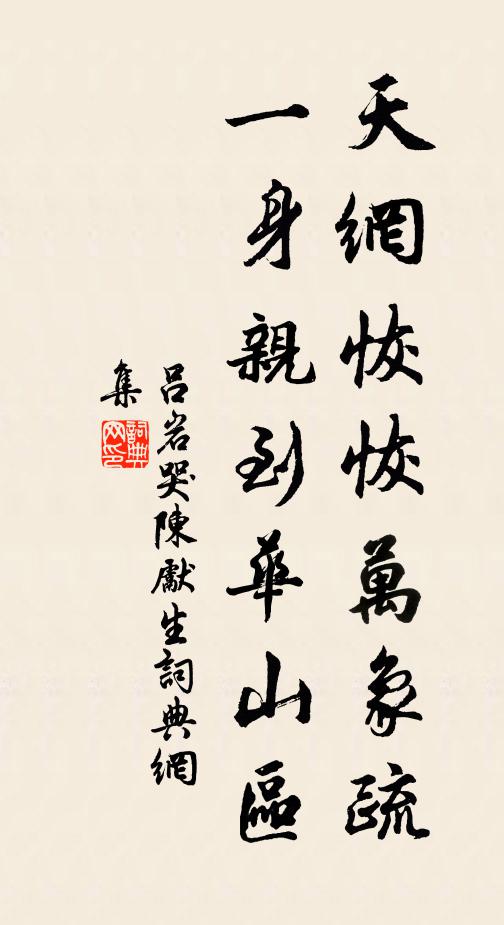 天網恢恢萬象疏
一身親到華山區
呂岩哭陳獻生詞典網
集
詞典
网印